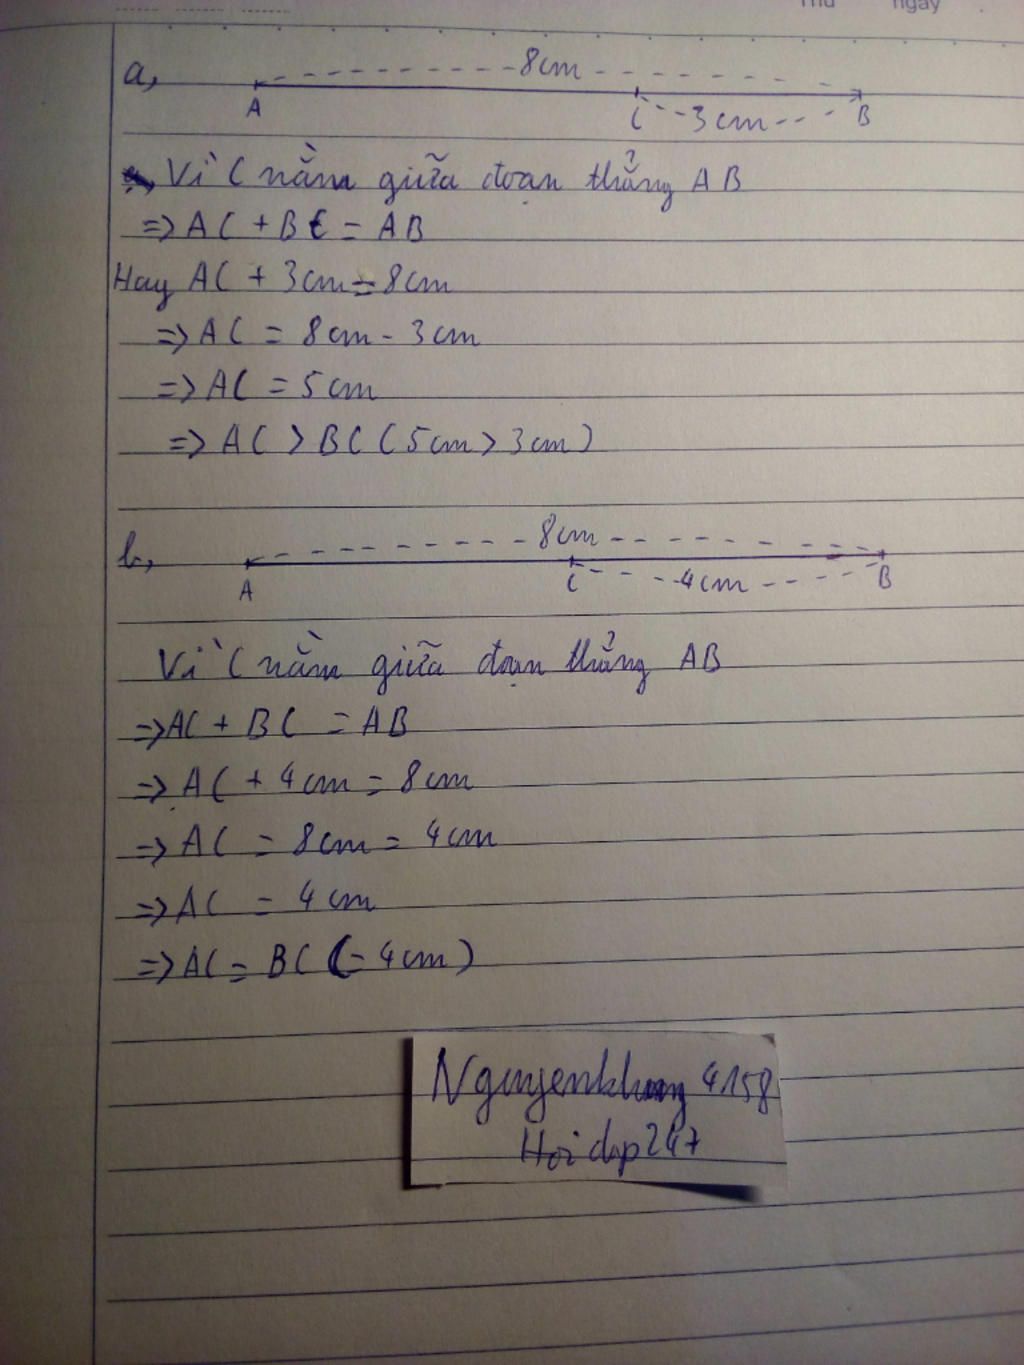 Thứ ngày
a, 8cm
A C 3cm B
Vì C nằm giữa đoạn thẳng AB
=> AC + BC = AB
Hay AC + 3cm = 8cm
=> AC = 8cm - 3cm
=> AC = 5cm
=> AC > BC (5cm > 3cm)
b, 8cm
A C 4cm B
Vì C nằm giữa đoạn thẳng AB
=> AC + BC = AB
=> AC + 4cm = 8cm
=> AC = 8cm = 4cm
=> AC = 4cm
=> AC = BC (= 4cm)
Nguyenkhang 4158
Hoi dap 247